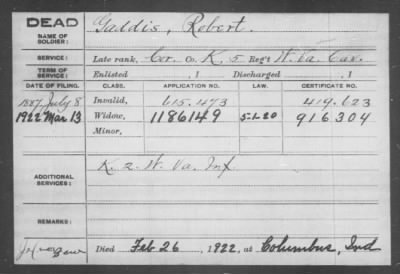 DEAD
NAME OF SOLDIER: Galdis, Robert.
SERVICE: Late rank, Cor. Co. K, 5 Reg't W. Va. Cav.
TERM OF SERVICE: Enlisted , 1 Discharged , 1
DATE OF FILING. CLASS. APPLICATION NO. LAW. CERTIFICATE NO.
1887 July 8 Invalid, 615.473 419.623
1922 Mar 13 Widow, 1186149 5-1-20 916304
Minor,
ADDITIONAL SERVICES: K. 2. W. Va. Inf.
REMARKS:
Died Feb 26, 1922, at Columbus, Ind